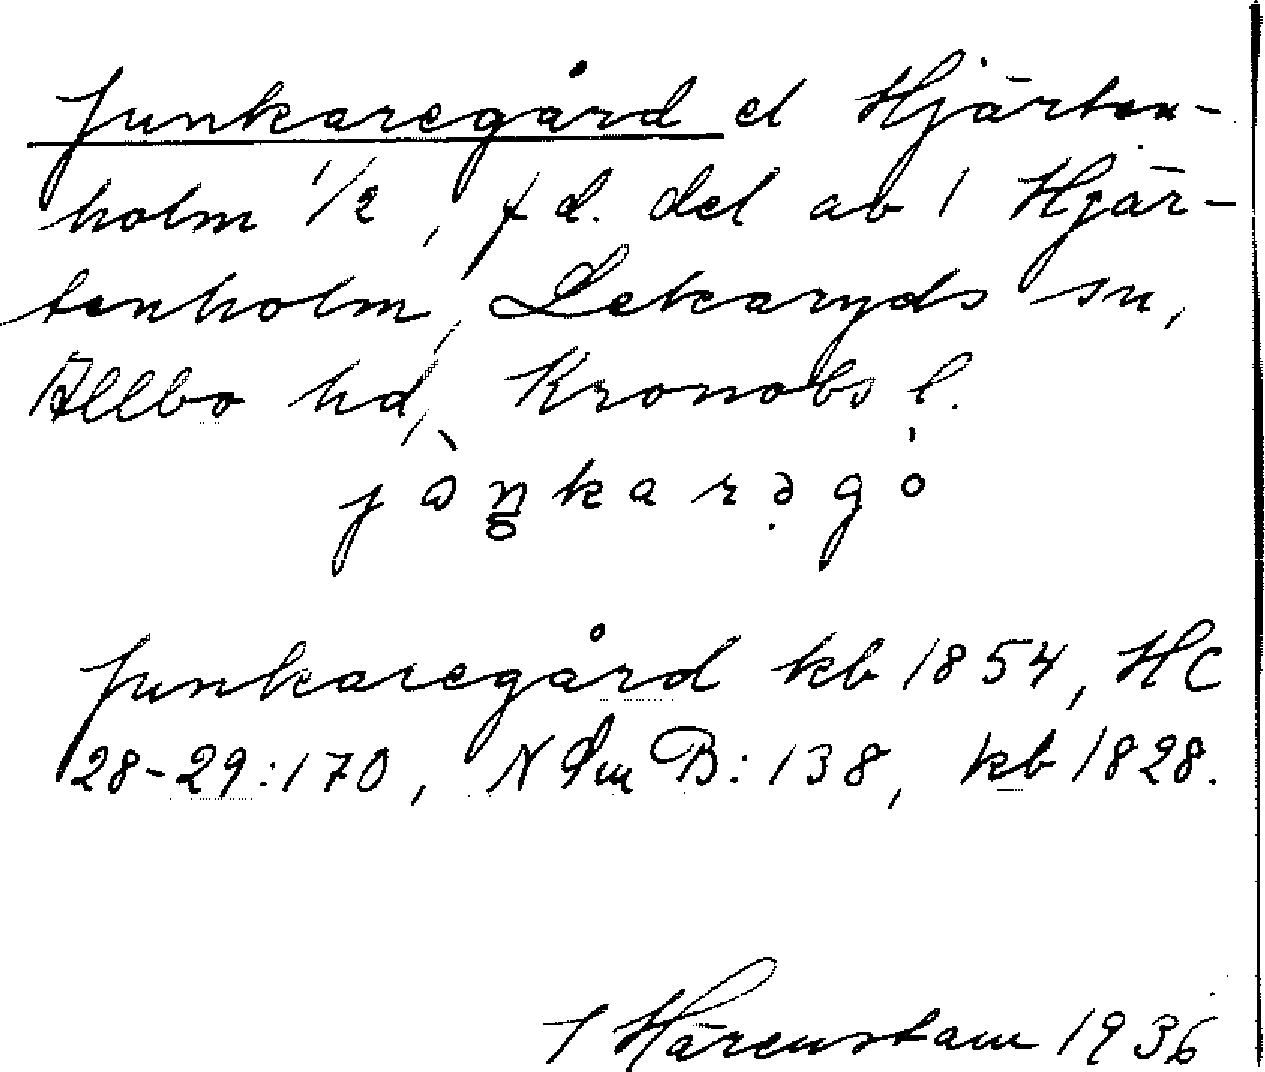 Junkaregård el Hjärten-
holm 1/2, f d. del av 1 Hjär-
tenholm, Lekaryds sn,
Allbo hd, Kronobs l.
jò̀ŋkarəgó
Junkaregård kb 1854, HC
28-29:170, N Sm B:138, kb 1828.
I Härenstam 1936